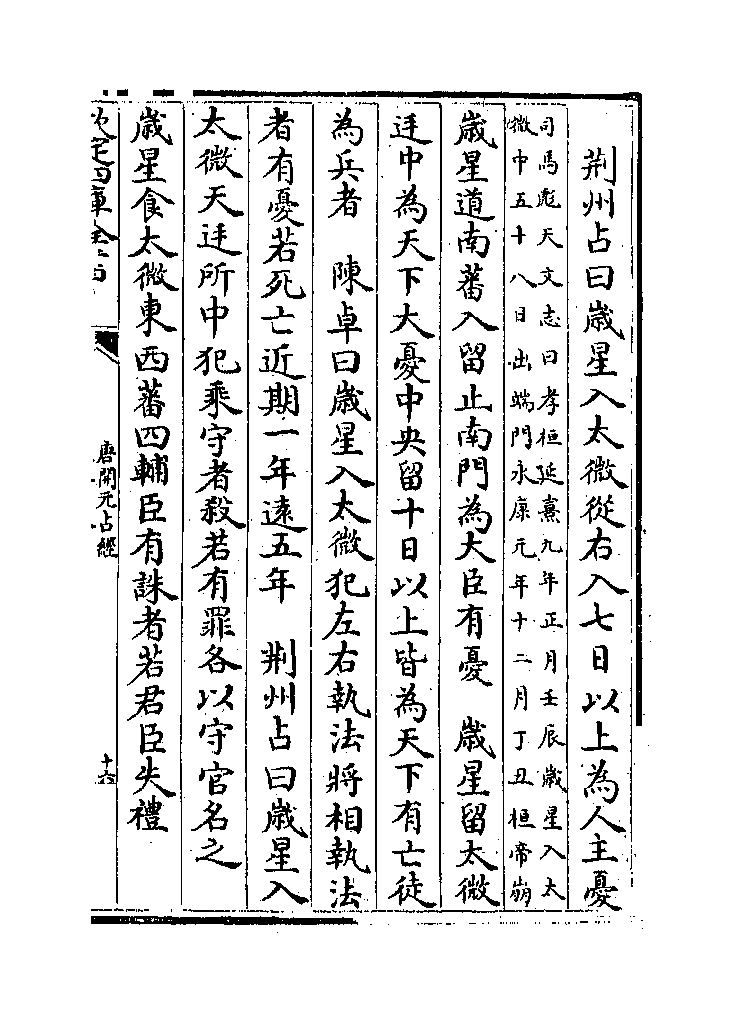 荆州占曰歳星入太微從右入七日以上為人主憂
司馬彪天文志曰孝桓延熹九年正月壬辰歳星入太
微中五十八日出端門永康元年十二月丁丑桓帝崩
歳星道南蕃入留止南門為大臣有憂　歳星留太微
廷中為天下大憂中央留十日以上皆為天下有亡徒
為兵者　陳卓曰歳星入太微犯左右執法將相執法
者有憂若死亡近期一年逺五年　荆州占曰歳星入
太微天廷所中犯乘守者殺若有罪各以守官名之
歳星食太微東西蕃四輔臣有誅者若君臣失禮
欽定四庫全書
唐開元占經
十六